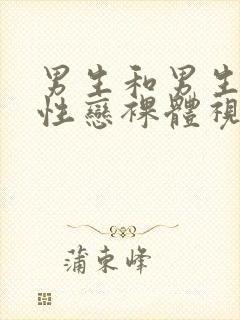 男生和男生
性戀裸體視
蒲東峰